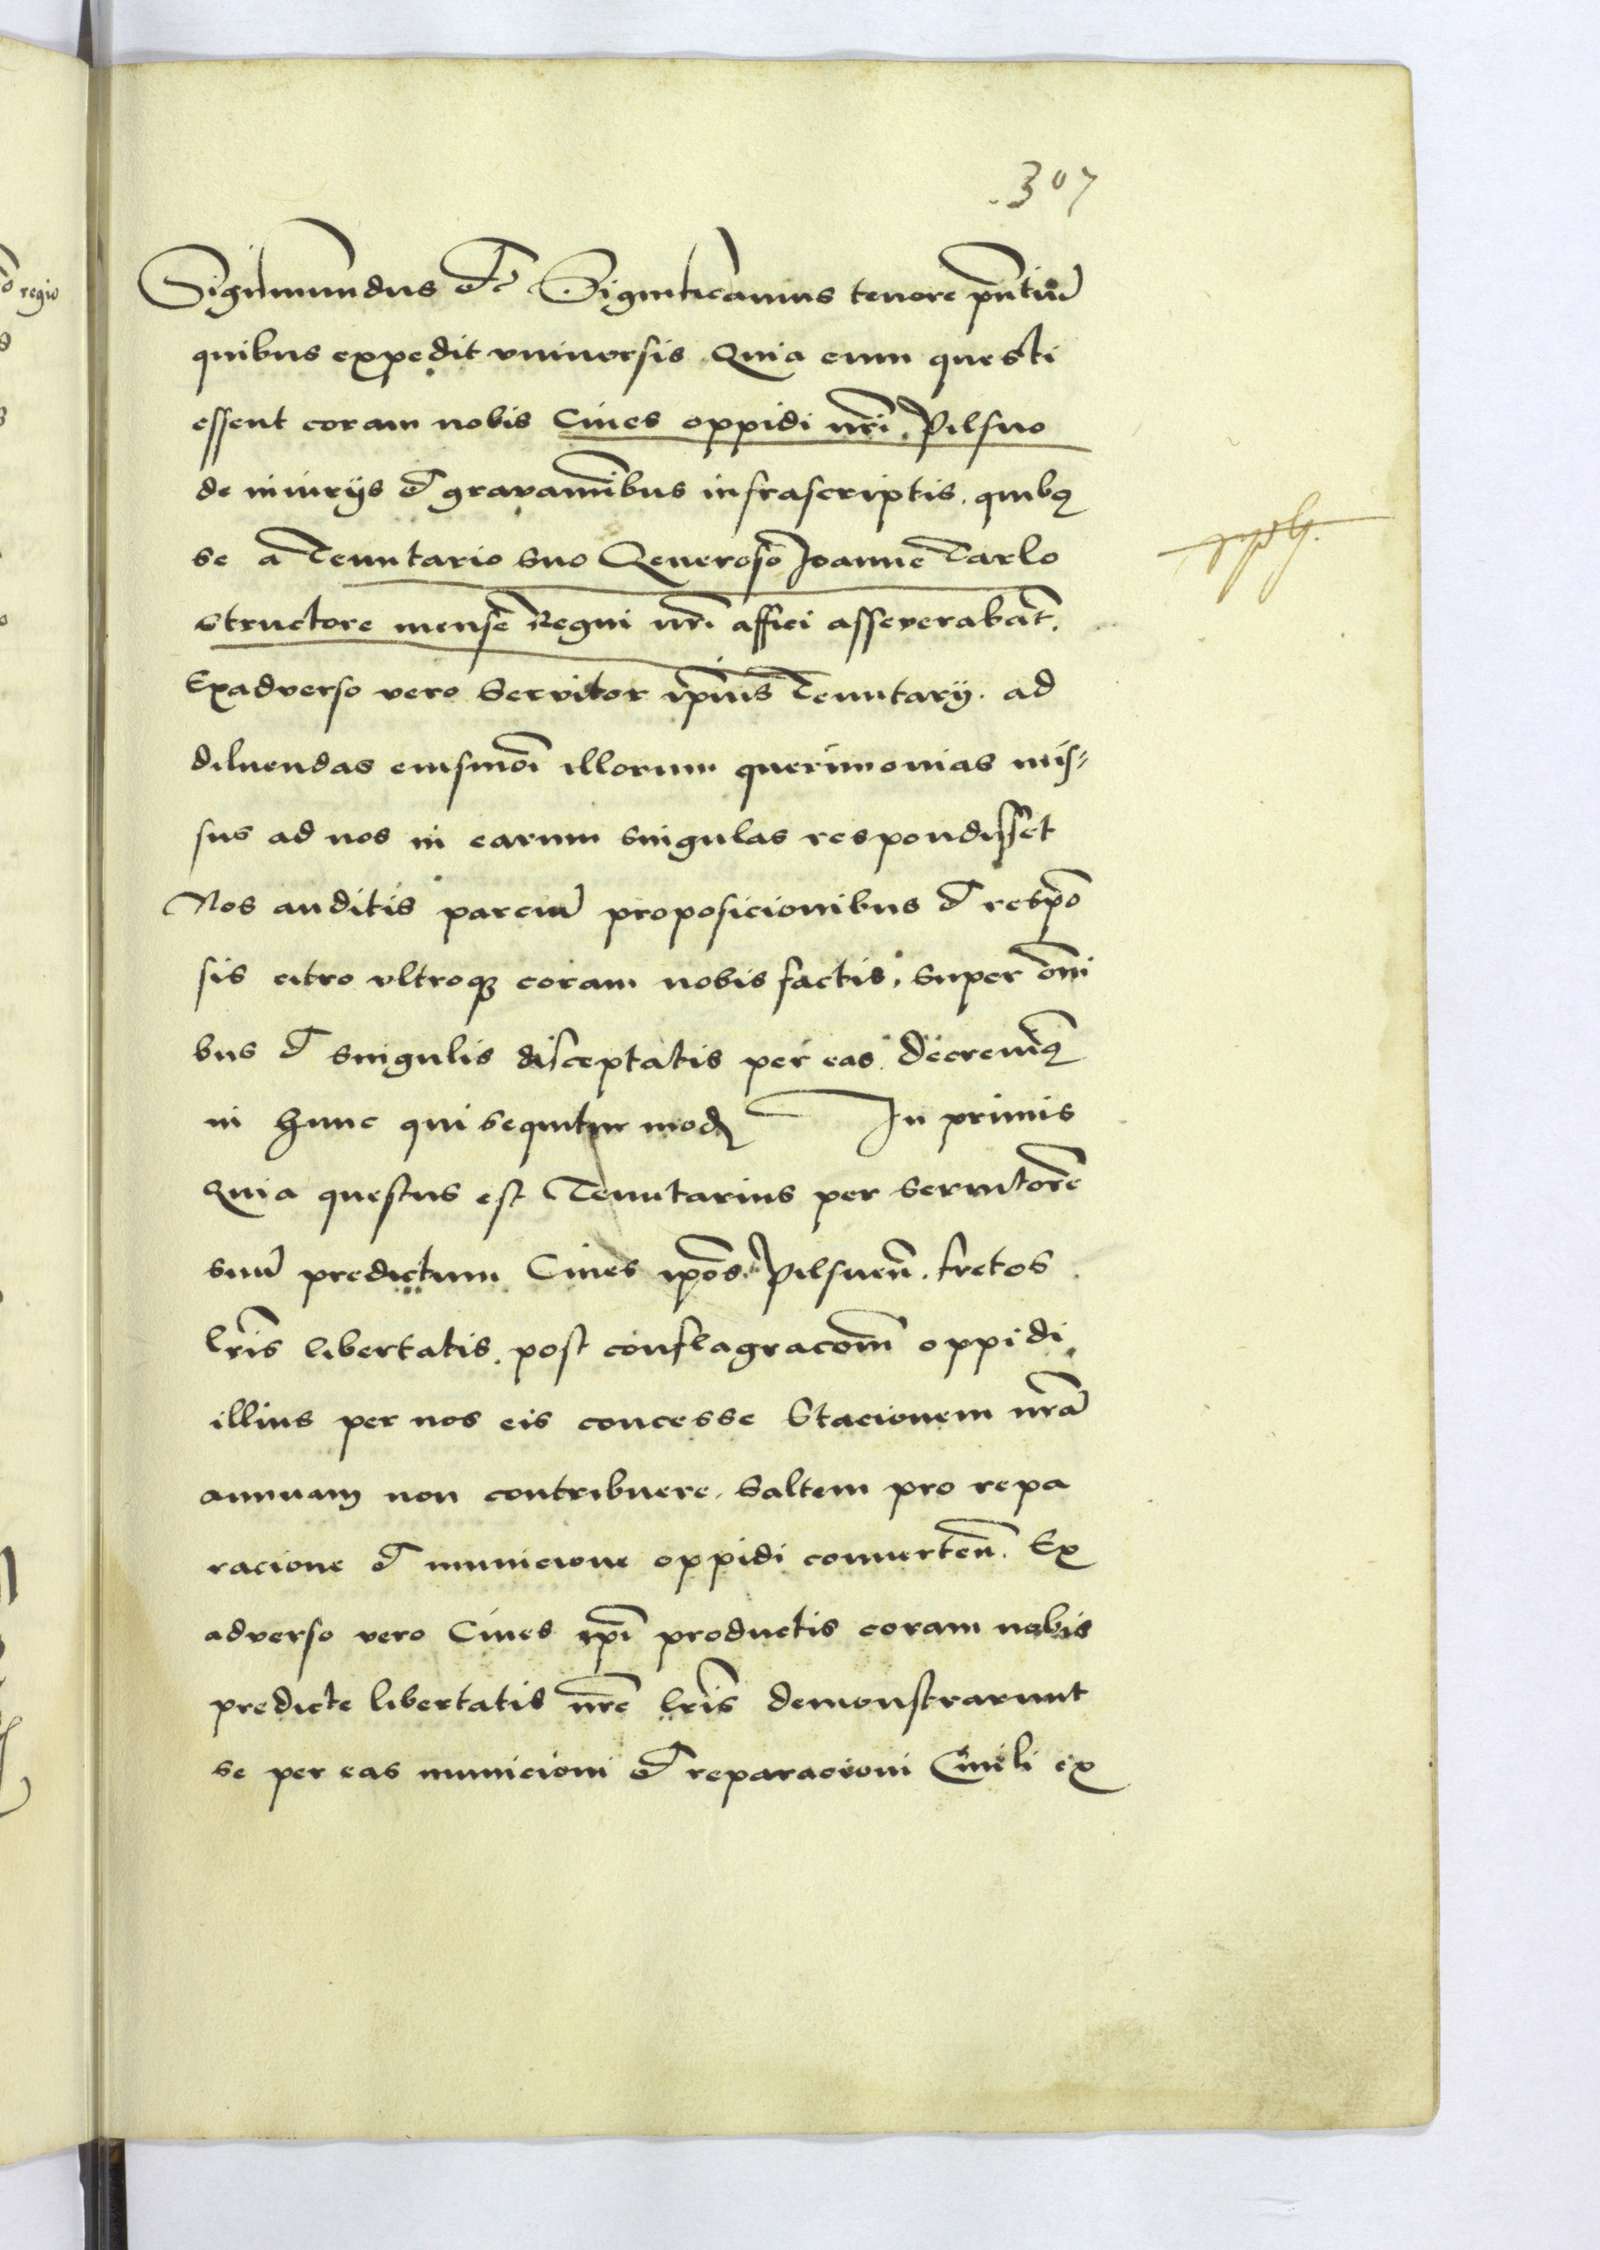 307
Sigismundus etc Significamus tenore pñtiũ
quibus expedit vniuersis Quia cum questi
essent coram nobis Ciues oppidi nr̃i Pilsno
de iniurijs et grauamĩbus infrascriptis. quibꝫ
se a Tenutario suo Generoso Joanne Tarlo
Structore mense Regni nr̃i affici asseverabãt.
Exadverso vero Servitor ip̃ius Tenutarij. ad
diluendas eiusmõi illorum querimonias mis⸗
sus ad nos in earum singulas respondisset
Nos auditis parciũ proposicionibus et respõ
sis citro vltroqꝫ coram nobis factis, super om̃i
bus et singulis disceptatis per eas decreuimꝫ
in hunc qui sequitur modũ In primis
Quia questus est Tenutarius per servitorẽ
suũ predictum Ciues ip̃os Pilsneñ. fretos
lr̃is libertatis. post conflagracom̃ oppidi
illius per nos eis concesse Stacionem nr̃ã
annuam non contribuere. saltem pro repa
racione et municione oppidi conuerteñ. Ex
adverso vero Ciues ip̃i productis coram nobis
predicte libertatis nr̃e lr̃is demonstrarunt
se per eas municioni et reparacioni Ciuili ex
regio